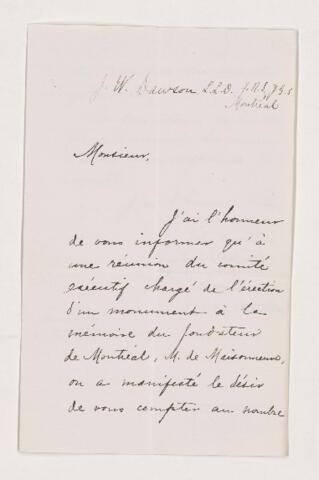 J. W. Dawson L.L.D. F.R.S., F.G.S
Montréal
Monsieur,
J'ai l'honneur
de vous informer qu'à
une réunion du comité
exécutif chargé de l'érection
d'un monument à la
mémoire du fondateur
de Montréal, M. de Maisonneuve,
on a manifesté le désir
de vous compter au nombre